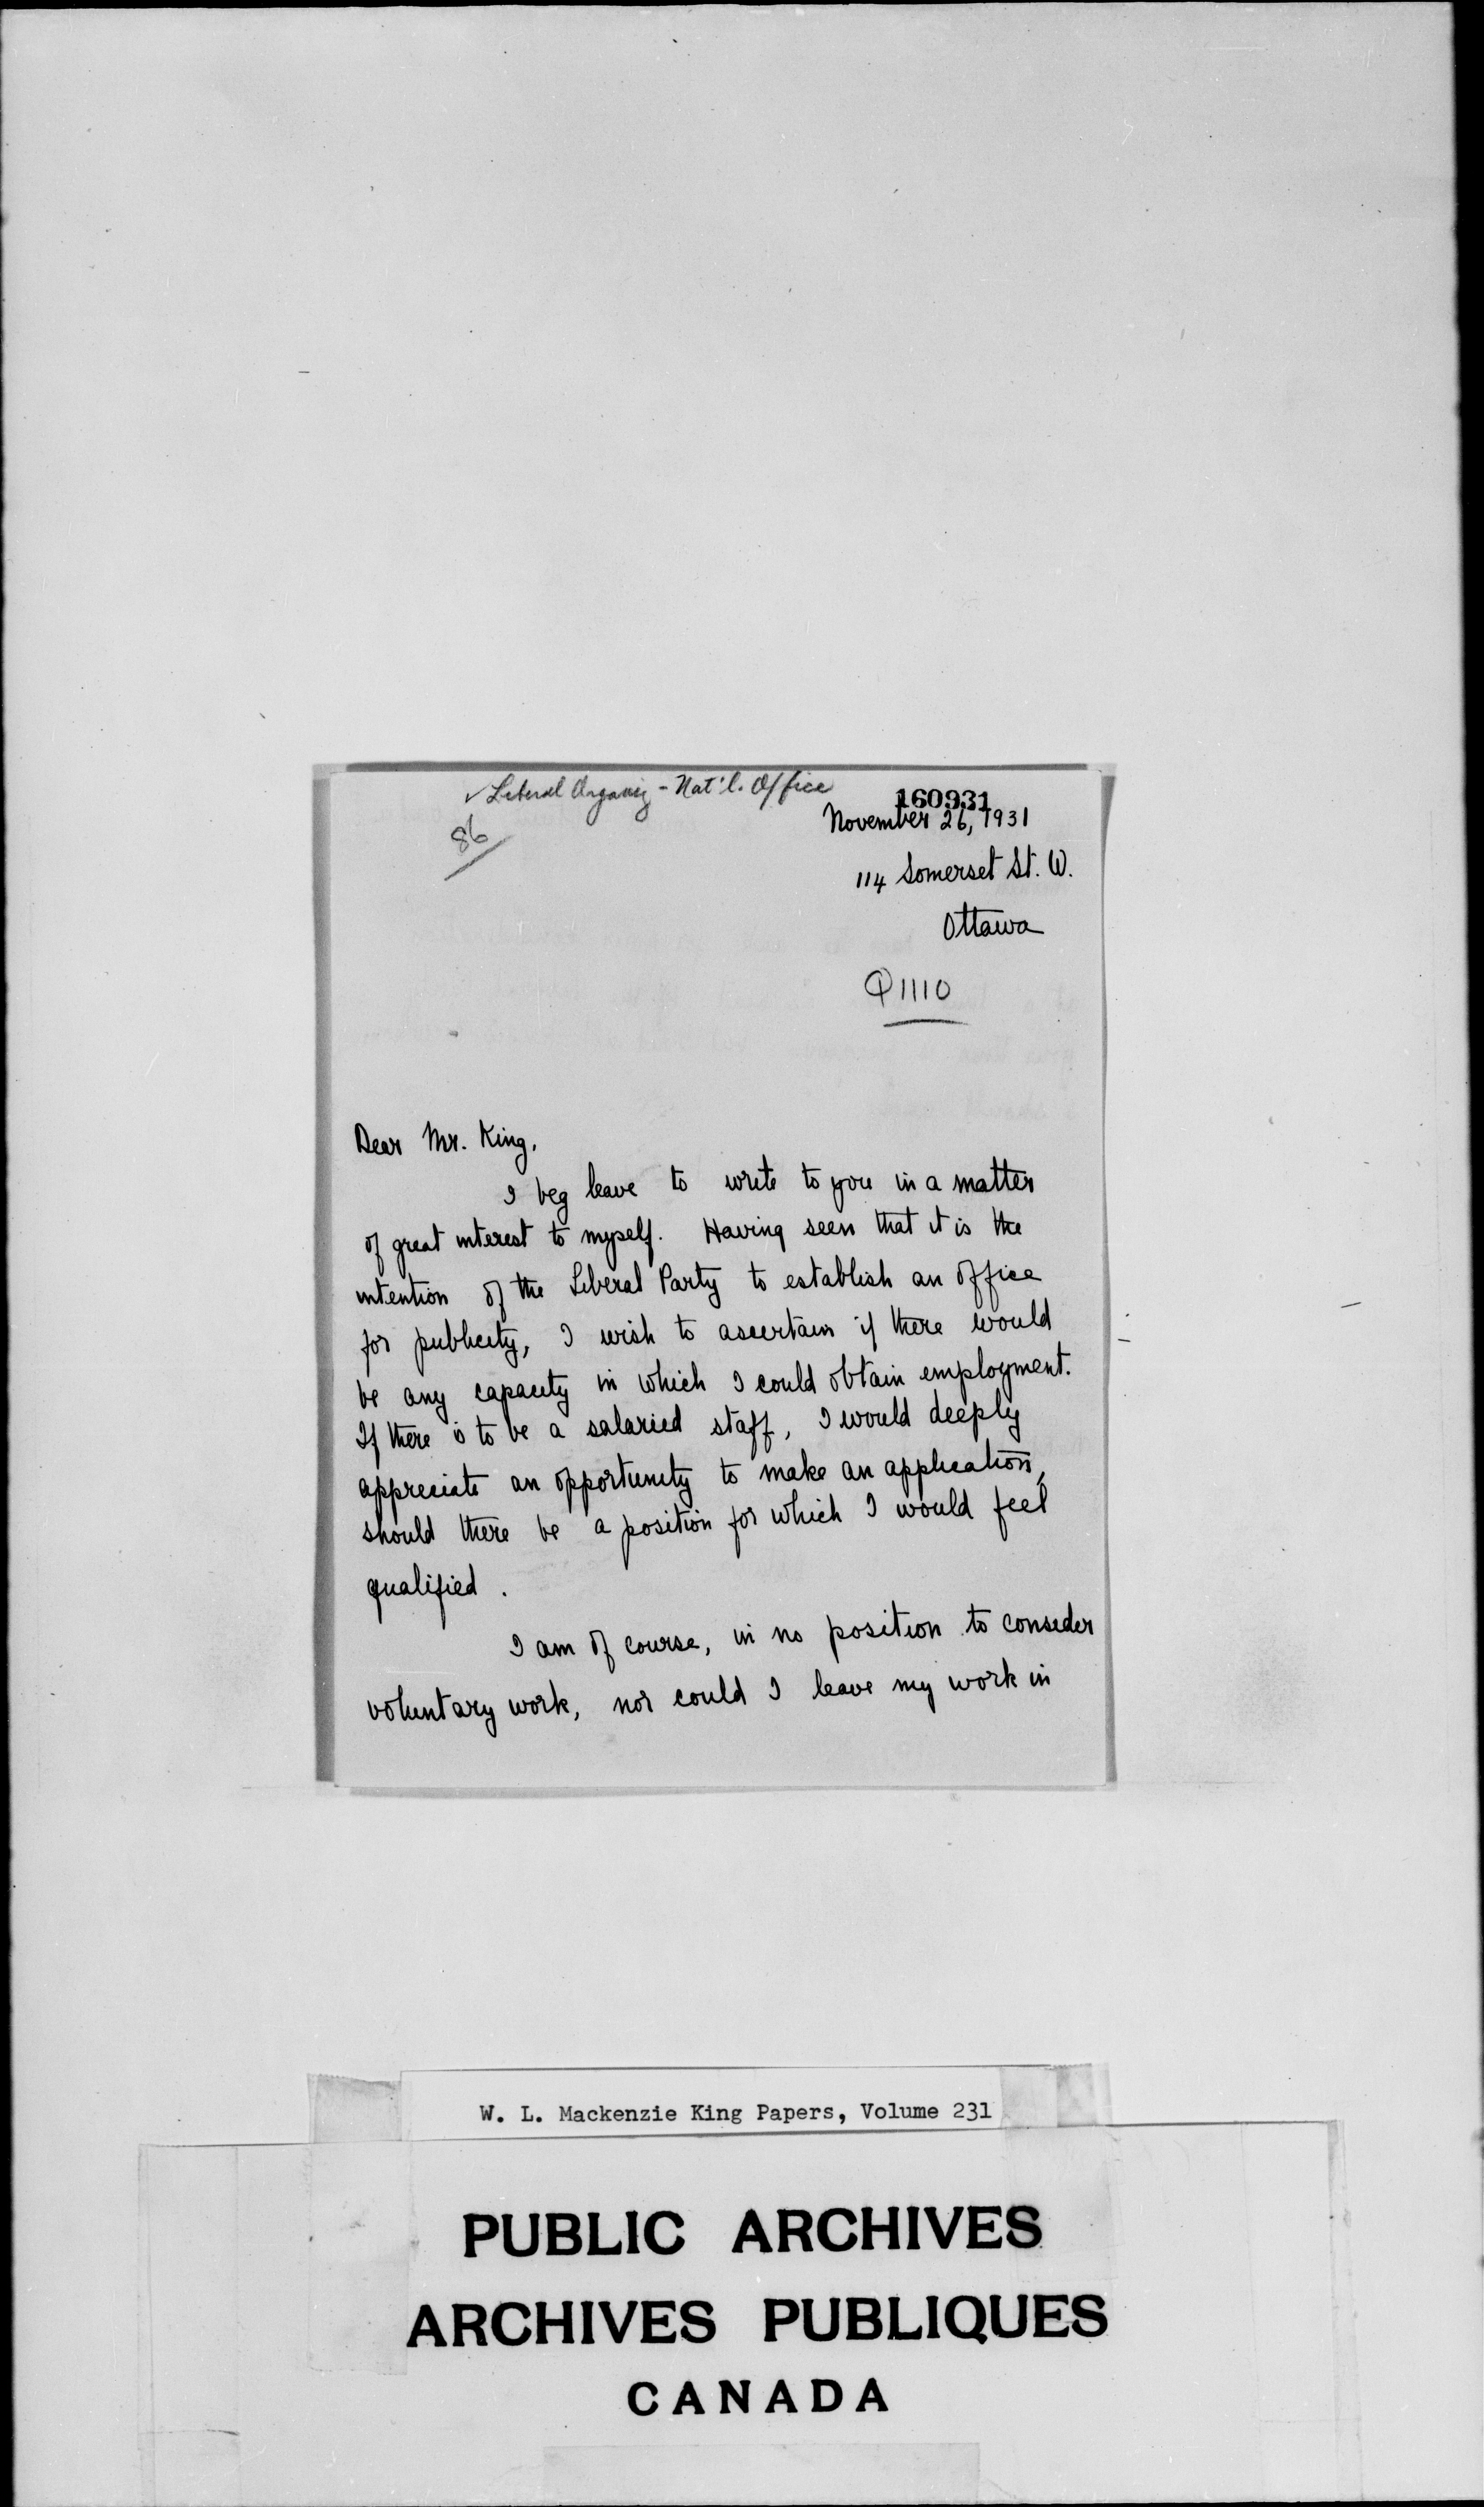 ✓ Liberal Organiz - Nat'l. Office
160931
86
November 26, 1931
114 Somerset St. W.
Ottawa
Q1110
Dear Mr. King,
I beg leave to write to you in a matter
of great interest to myself. Having seen that it is the
intention of the Liberal Party to establish an office
for publicity, I wish to ascertain if there would
be any capacity in which I could obtain employment.
If there is to be a salaried staff, I would deeply
appreciate an opportunity to make an application,
should there be a position for which I would feel
qualified.
I am of course, in no position to consider
voluntary work, nor could I leave my work in
W. L. Mackenzie King Papers, Volume 231
PUBLIC ARCHIVES
ARCHIVES PUBLIQUES
CANADA